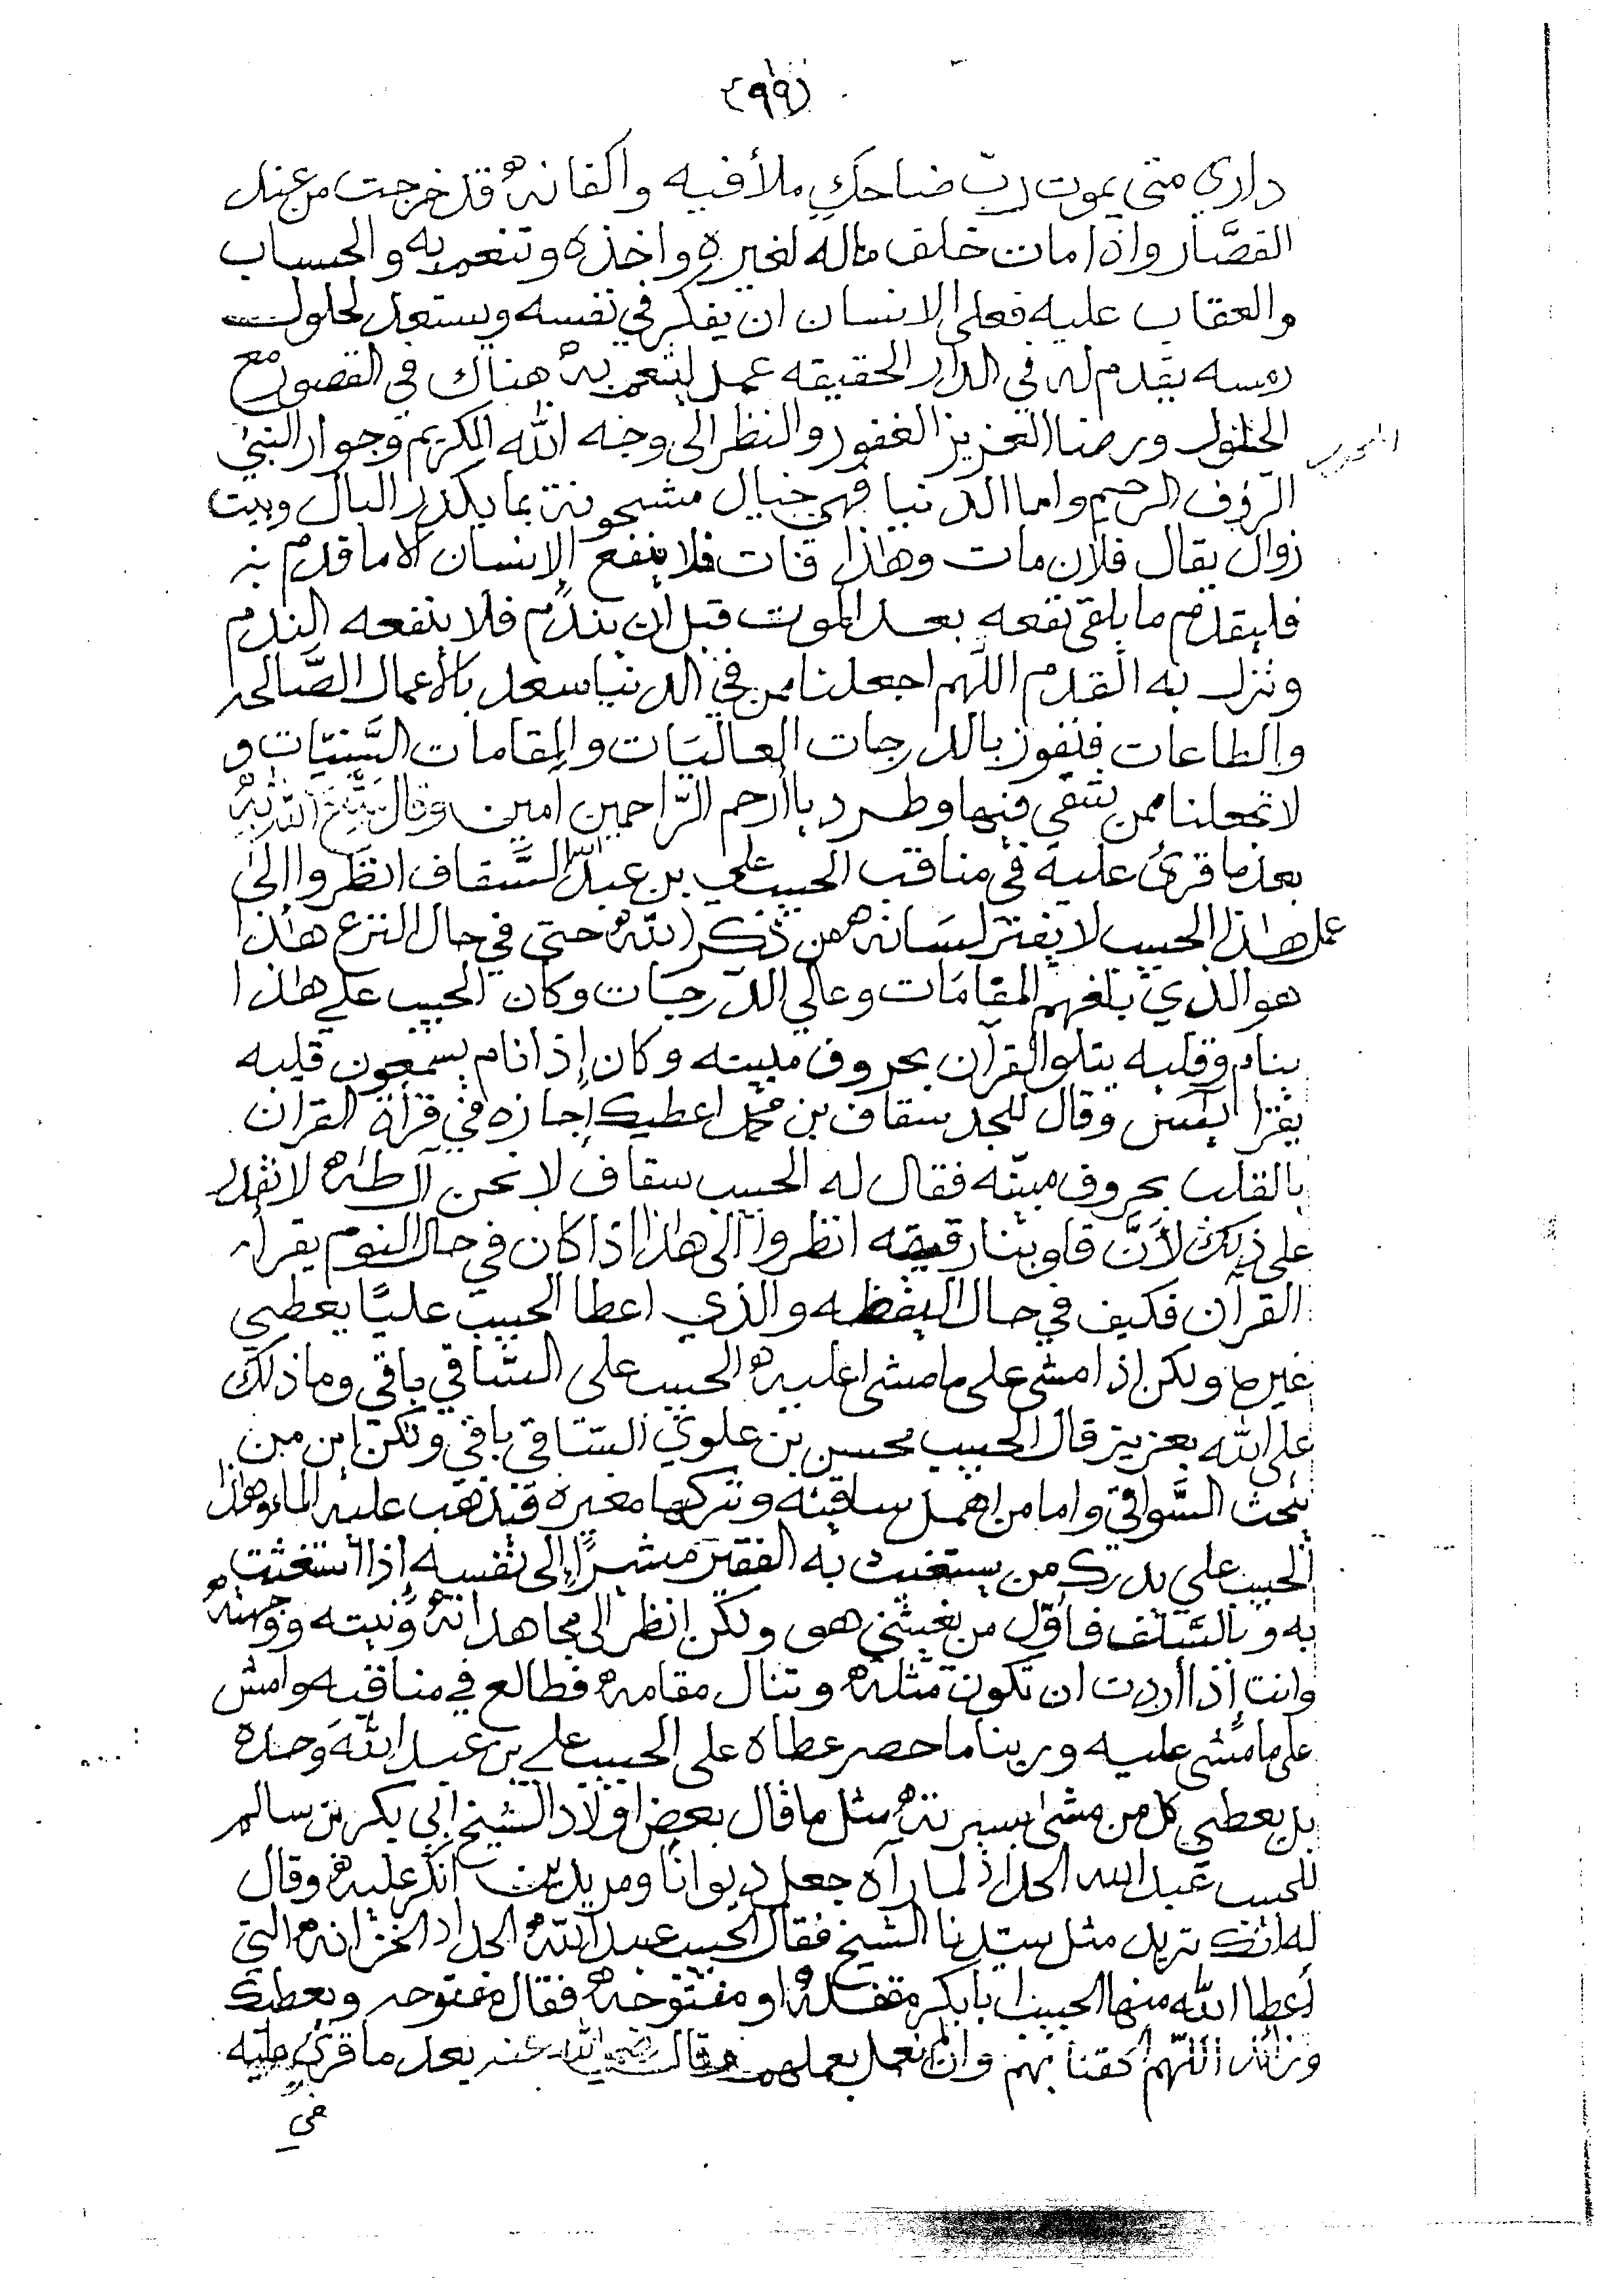 (٩٩)
داري متى يموت ربّ ضاحك ملأ فيه واكفانه قد خرجت من عند
القصَّار واذا مات خلف ماله لغيره واخذه وتنعم به والحساب
والعقاب عليه فعلى الانسان ان يفكر في نفسه ويستعد لحلول
رمسه يقدم له في الدار الحقيقه عمل ليتنعم به هناك في القصور مع
الحور ورضا العزيز الغفور والنظر الى وجه الله الكريم وجوار النبي
الرؤف الرحيم واما الدنيا فهي خيال مشحونة بما يكدر البال وبيت
زوال يقال فلان مات وهاذا فات فلا ينفع الإنسان الا ما قدم به
فليقدم ما يلقى نفعه بعد الموت قبل ان يندم فلا ينفعه الندم
وتزل به القدم اللهم اجعلنا ممن في الدنيا سعد بالأعمال الصَّالحه
والطاعات فنفوز بالدرجات العاليَات والمقامات السَّنيّات و
لا تجعلنا ممن يشقى فيها وطرد يا أرحم الرّاحمين آمين وقال
بعد ما قرئ عليه في مناقب الحبيب علي بن عبد الله السَّقاف انظروا إلى
عمل هاذا الحبيب لا يفتر لسَانه من ذكر الله حتى في حال النزع هاذا
هو الذي بلغهم المقامَات وعالي الدّرجَات وكان الحبيب علي هاذا
ينام وقلبه يتلو القرآن بحروف مبينه وكان إذا نام يسمعون قلبه
يقرا يٓس وقال للجد سقاف بن محمد اعطيك إجازه في قرآة القران
بالقلب بحروف مبيّنه فقال له الحبيب سقاف لا نحن آل طٰه لا نقدر
على ذلك لأَنَّ قلوبنا رقيقه انظروا الى هاذا اذا كان في حال النوم يقرأ
القرآن فكيف في حال اليقظه والذي اعطا الحبيب عليًا يعطي
غيره ولكن اذا مشى على ما مشى عليه الحبيب على الساقي باقي وما ذلك
على الله بعزيز قال الحبيب محسن بن علوي السّاقي باقي ولكن اين من
ينحث السَّواقي واما من اهمل ساقيته وتركها مغبره فيذهب عليه الماء وهاذا
الحبيب علي يدرك من يستغيث به الفقير مشيرًا إلى نفسه إذا استغثت
به وبالسَّلف فأوّل من يغيثني هو ولكن انظر الى مجاهداته ونيته ووجهته
وانت إذا أردت ان تكون مثله وتنال مقامه فطالع في مناقبه وامش
على ما مشى عليه وربنا ما حصر عطاه على الحبيب علي بن عبد الله وحده
بل يعطي كل من مشى بسيرته مثل ما قال بعض اولاد الشيخ ابي بكر بن سالم
للحبيب عبد الله الحداد لما رآه جعل ديوانًا ومريدين انكر عليه وقال
له انك تريد مثل سيدنا الشيخ فقال الحبيب عبد الله الحداد الخزانه التي
أعطا الله منها الحبيب ابا بكر مقفله او مفتوحه فقال مفتوحه ويعطيك
وزائد اللّهم الحقنا بهم وان لم نعمل بعملهم وقال رضي الله عنه بعد ما قرئ عليه
في